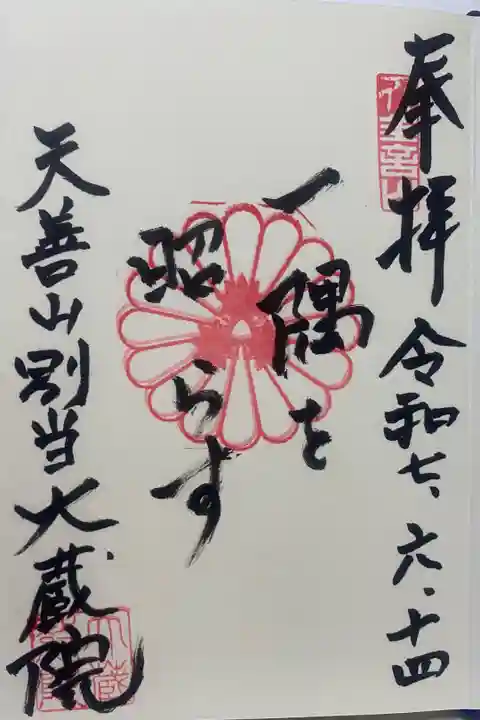 奉拝 令和七、六、十四
一隅を
昭らす
天善山別当大蔵院